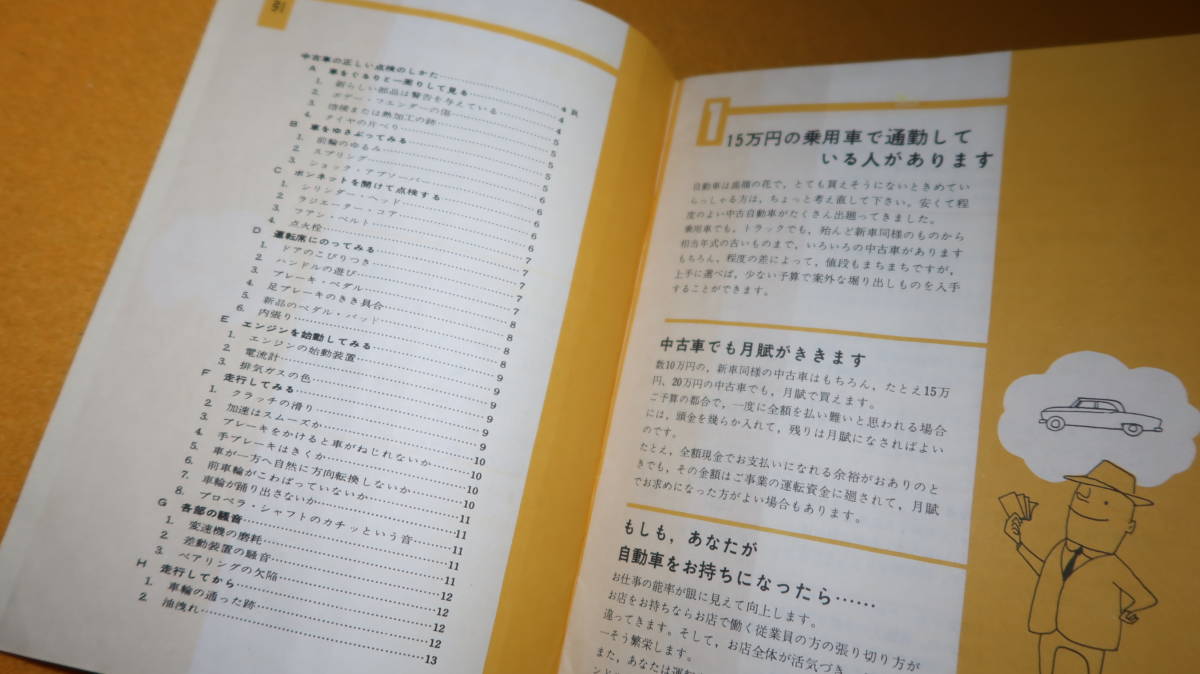 引
中古車の正しい点検のしかた
A 車をぐるりと一周りして見る 4 頁
1. 新らしい部品は警告を与えている 4
2. ボデー・フエンダーの傷 4
3. 熔接または熱加工の跡 4
4. タイヤの片べり 5
B 車をゆさぶってみる 5
1. 前輪のゆるみ 5
2. スプリング 5
3. ショック・アブソーバー 5
C ボンネットを開けて点検する 6
1. シリンダー・ヘッド 6
2. ラジエーター・コア 6
3. フアン・ベルト 6
4. 点火栓 6
D 運転席にのってみる 7
1. ドアのこびりつき 7
2. ハンドルの遊び 7
3. ブレーキ・ペダル 7
4. 足ブレーキのきき具合 7
5. 新品のペダル・パッド 8
6. 内張り 8
E エンジンを始動してみる 8
1. エンジンの始動装置 8
2. 電流計 9
3. 排気ガスの色 9
F 走行してみる 9
1. クラッチの滑り 9
2. 加速はスムーズか 9
3. ブレーキをかけると車がねじれないか 10
4. 手ブレーキはきくか 10
5. 車が一方へ自然に方向転換しないか 10
6. 前車輪がこわばっていないか 10
7. 車輪が踊り出さないか 11
8. プロペラ・シャフトのカチッという音 11
G 各部の騒音 11
1. 変速機の磨耗 11
2. 差動装置の騒音 11
3. ベアリングの欠陥 12
H 走行してから 12
1. 車輪の通った跡 12
2. 油洩れ 13
1 15万円の乗用車で通勤して
いる人があります
自動車は高嶺の花で，とても買えそうにないときめてい
らっしゃる方は，ちょっと考え直して下さい。安くて程
度のよい中古自動車がたくさん出廻ってきました。
乗用車でも，トラックでも，殆んど新車同様のものから
相当年式の古いものまで，いろいろの中古車があります
もちろん，程度の差によって，値段もまちまちですが，
上手に選べば，少ない予算で案外な堀り出しものを入手
することができます。
中古車でも月賦がききます
数10万円の，新車同様の中古車はもちろん，たとえ15万
円，20万円の中古車でも，月賦で買えます。
ご予算の都合で，一度に全額を払い難いと思われる場合
には，頭金を幾らか入れて，残りは月賦になさればよい
のです。
たとえ，全額現金でお支払いになれる余裕がおありのと
きでも，その金額はご事業の運転資金に廻されて，月賦
でお求めになった方がよい場合もあります。
もしも，あなたが
自動車をお持ちになったら……
お仕事の能率が眼に見えて向上します。
お店をお持ちならお店で働く従業員の方の張り切り方が
違ってきます。そして，お店全体が活気づき，
一そう繁栄します。
また，あなたは運転